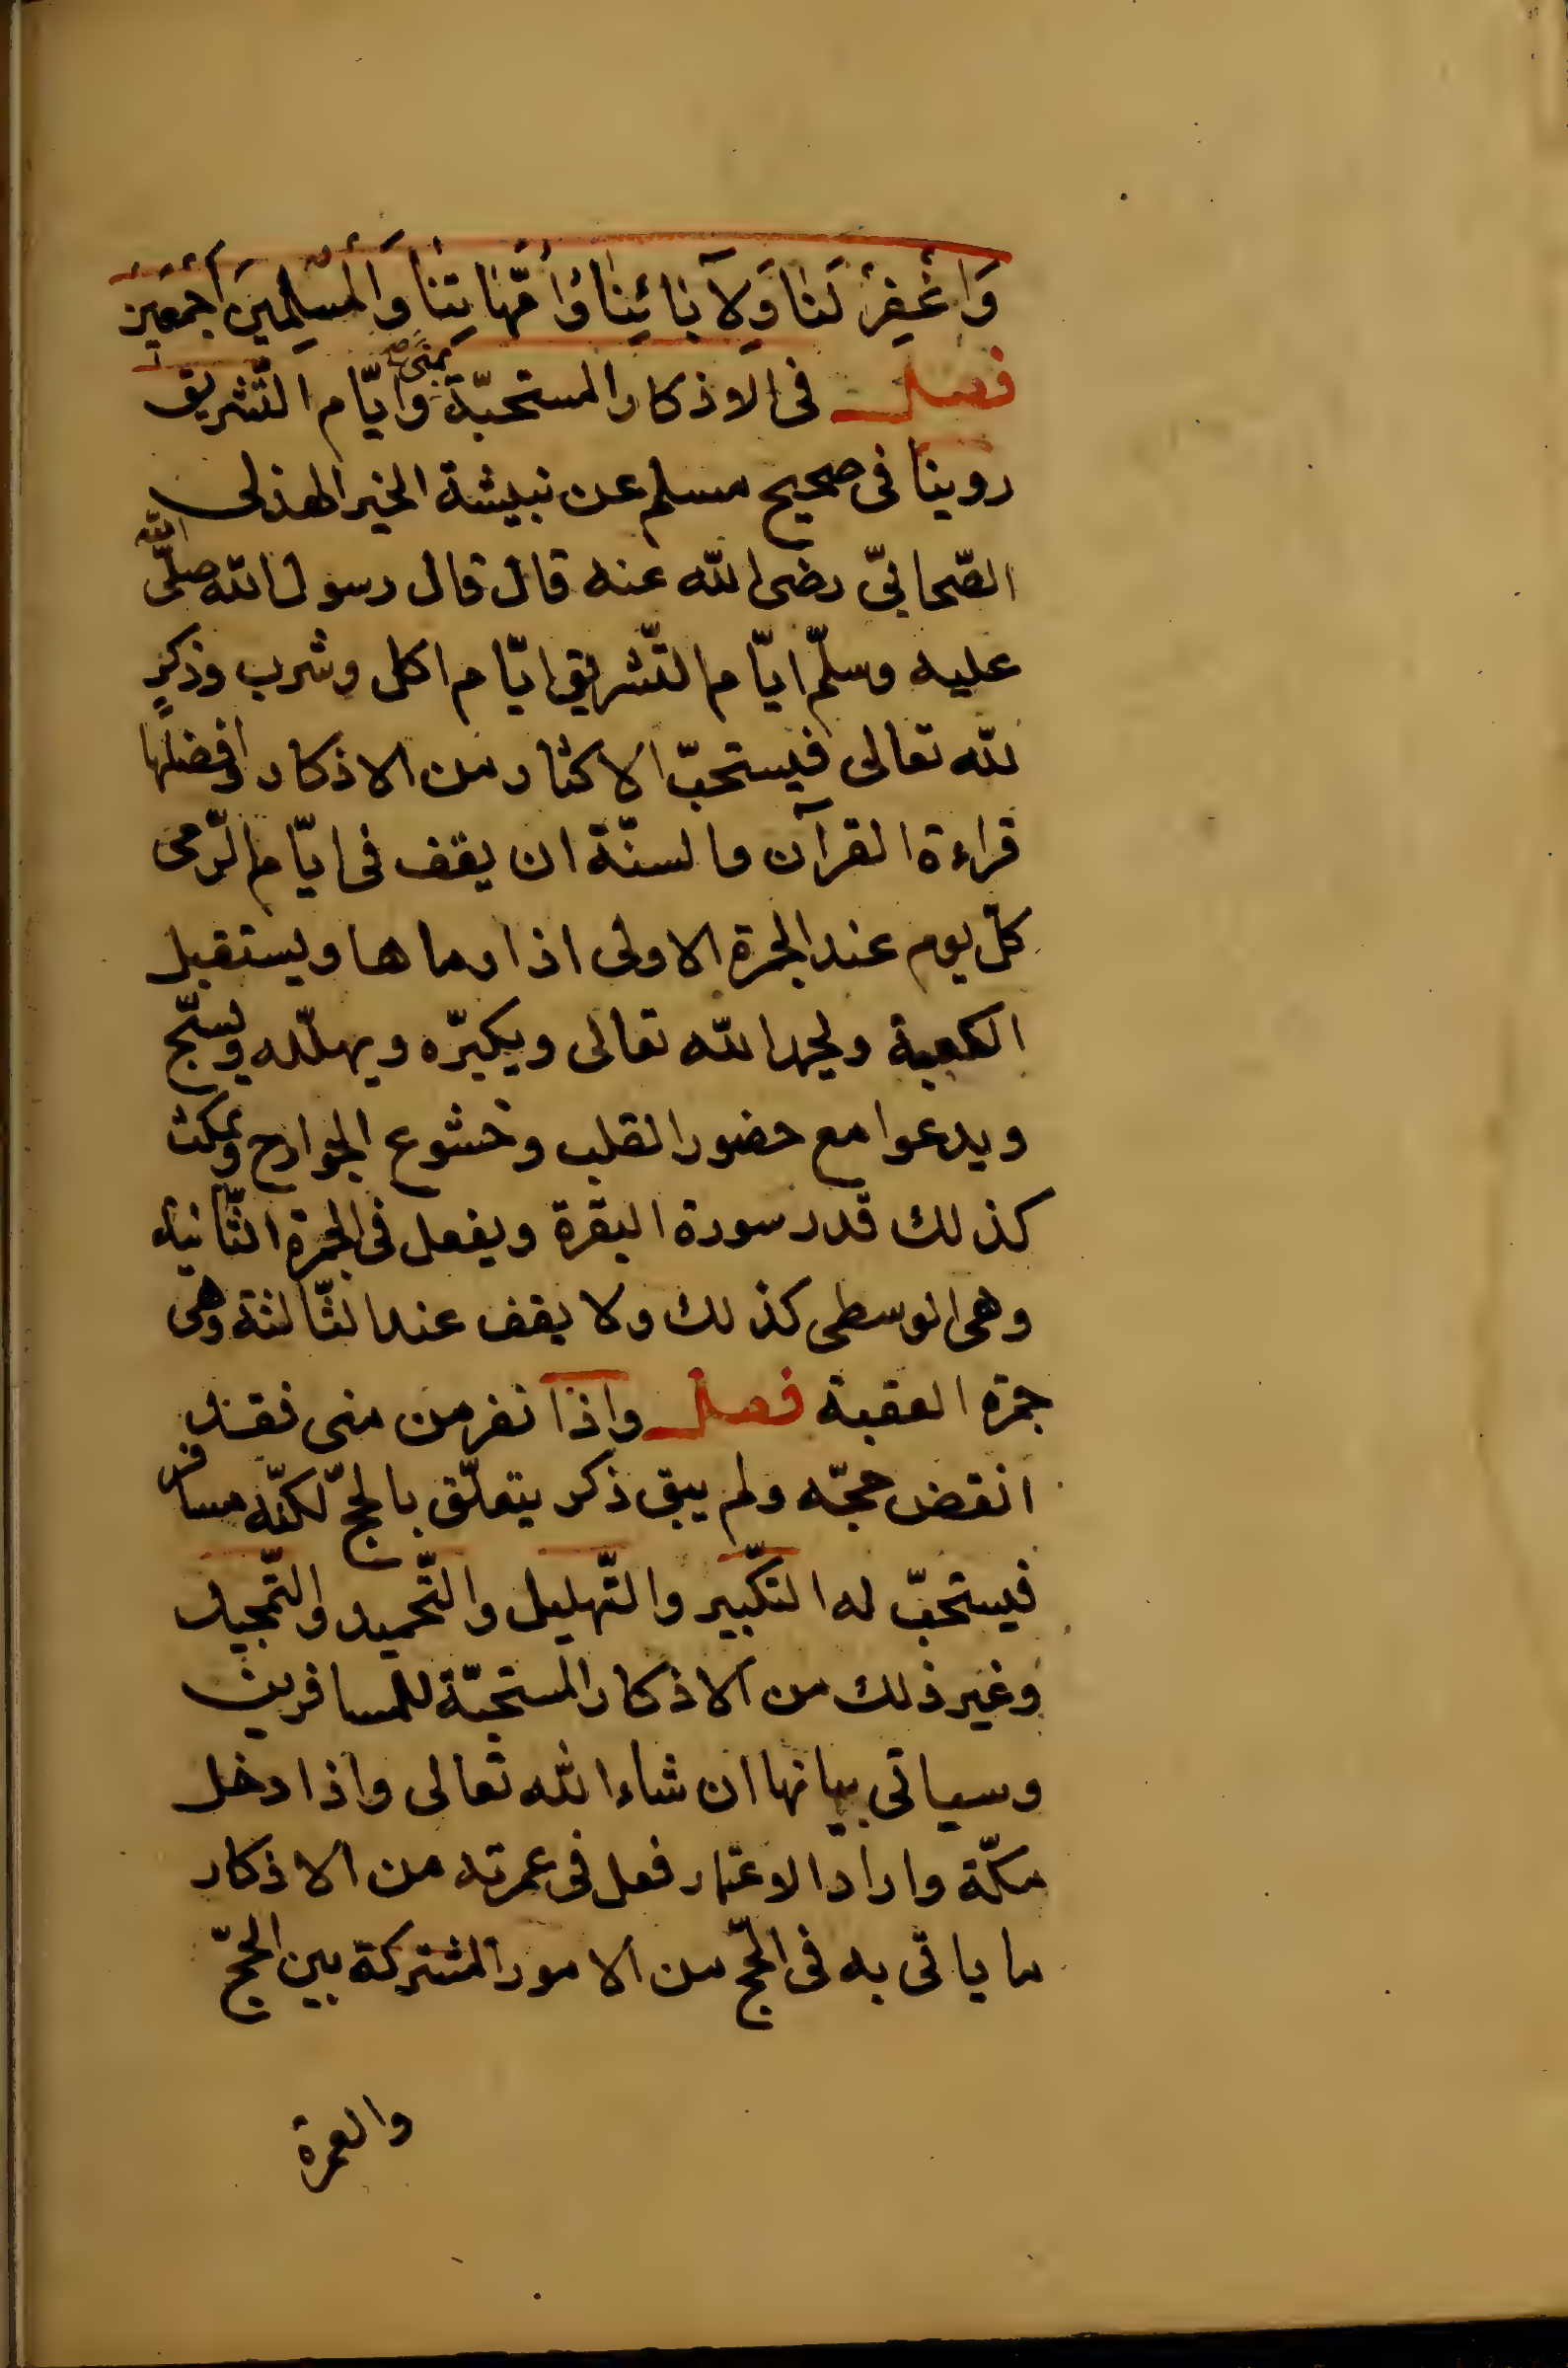 وَاغْفِرْ لَنَا وَلِآبَائِنَا وَأُمَّهَاتِنَا وَالْمُسْلِمِينَ أَجْمَعِينَ
فصل في الاذكار المستحبّة بمنًى وايّام التّشريق
روينا في صحيح مسلم عن نبيشة الخير الهذلي
الصّحابيّ رضى الله عنه قال قال رسول الله صلّى الله
عليه وسلّم ايّام التّشريق ايّام اكل وشرب وذكرٍ
لله تعالى فيستحبّ الاكثار من الاذكار وافضلها
قراءة القرآن والسنّة ان يقف في ايّام الرّمى
كلّ يوم عند الجمرة الاولى اذا رماها ويستقبل
الكعبة ويحمد الله تعالى ويكبّره ويهلّله ويسبّح
ويدعوا مع حضور القلب وخشوع الجوارح ويمكث
كذلك قدر سورة البقرة ويفعل في الجمرة الثّانية
وهى الوسطى كذلك ولا يقف عند الثّالثة وهى
جمرة العقبة فصل واذا نفر من منى فقد
انقضى حجّه ولم يبق ذكر يتعلّق بالحجّ لكنّه مسافر
فيستحبّ له التّكبير والتّهليل والتّحميد والتّمجيد
وغير ذلك من الاذكار المستحبّة للمسافرين
وسياتى بيانها ان شاء الله تعالى واذا دخل
مكّة واراد الاعتمار فعل في عمرته من الاذكار
ما ياتى به في الحجّ من الامور المشتركة بين الحجّ
والعمرة